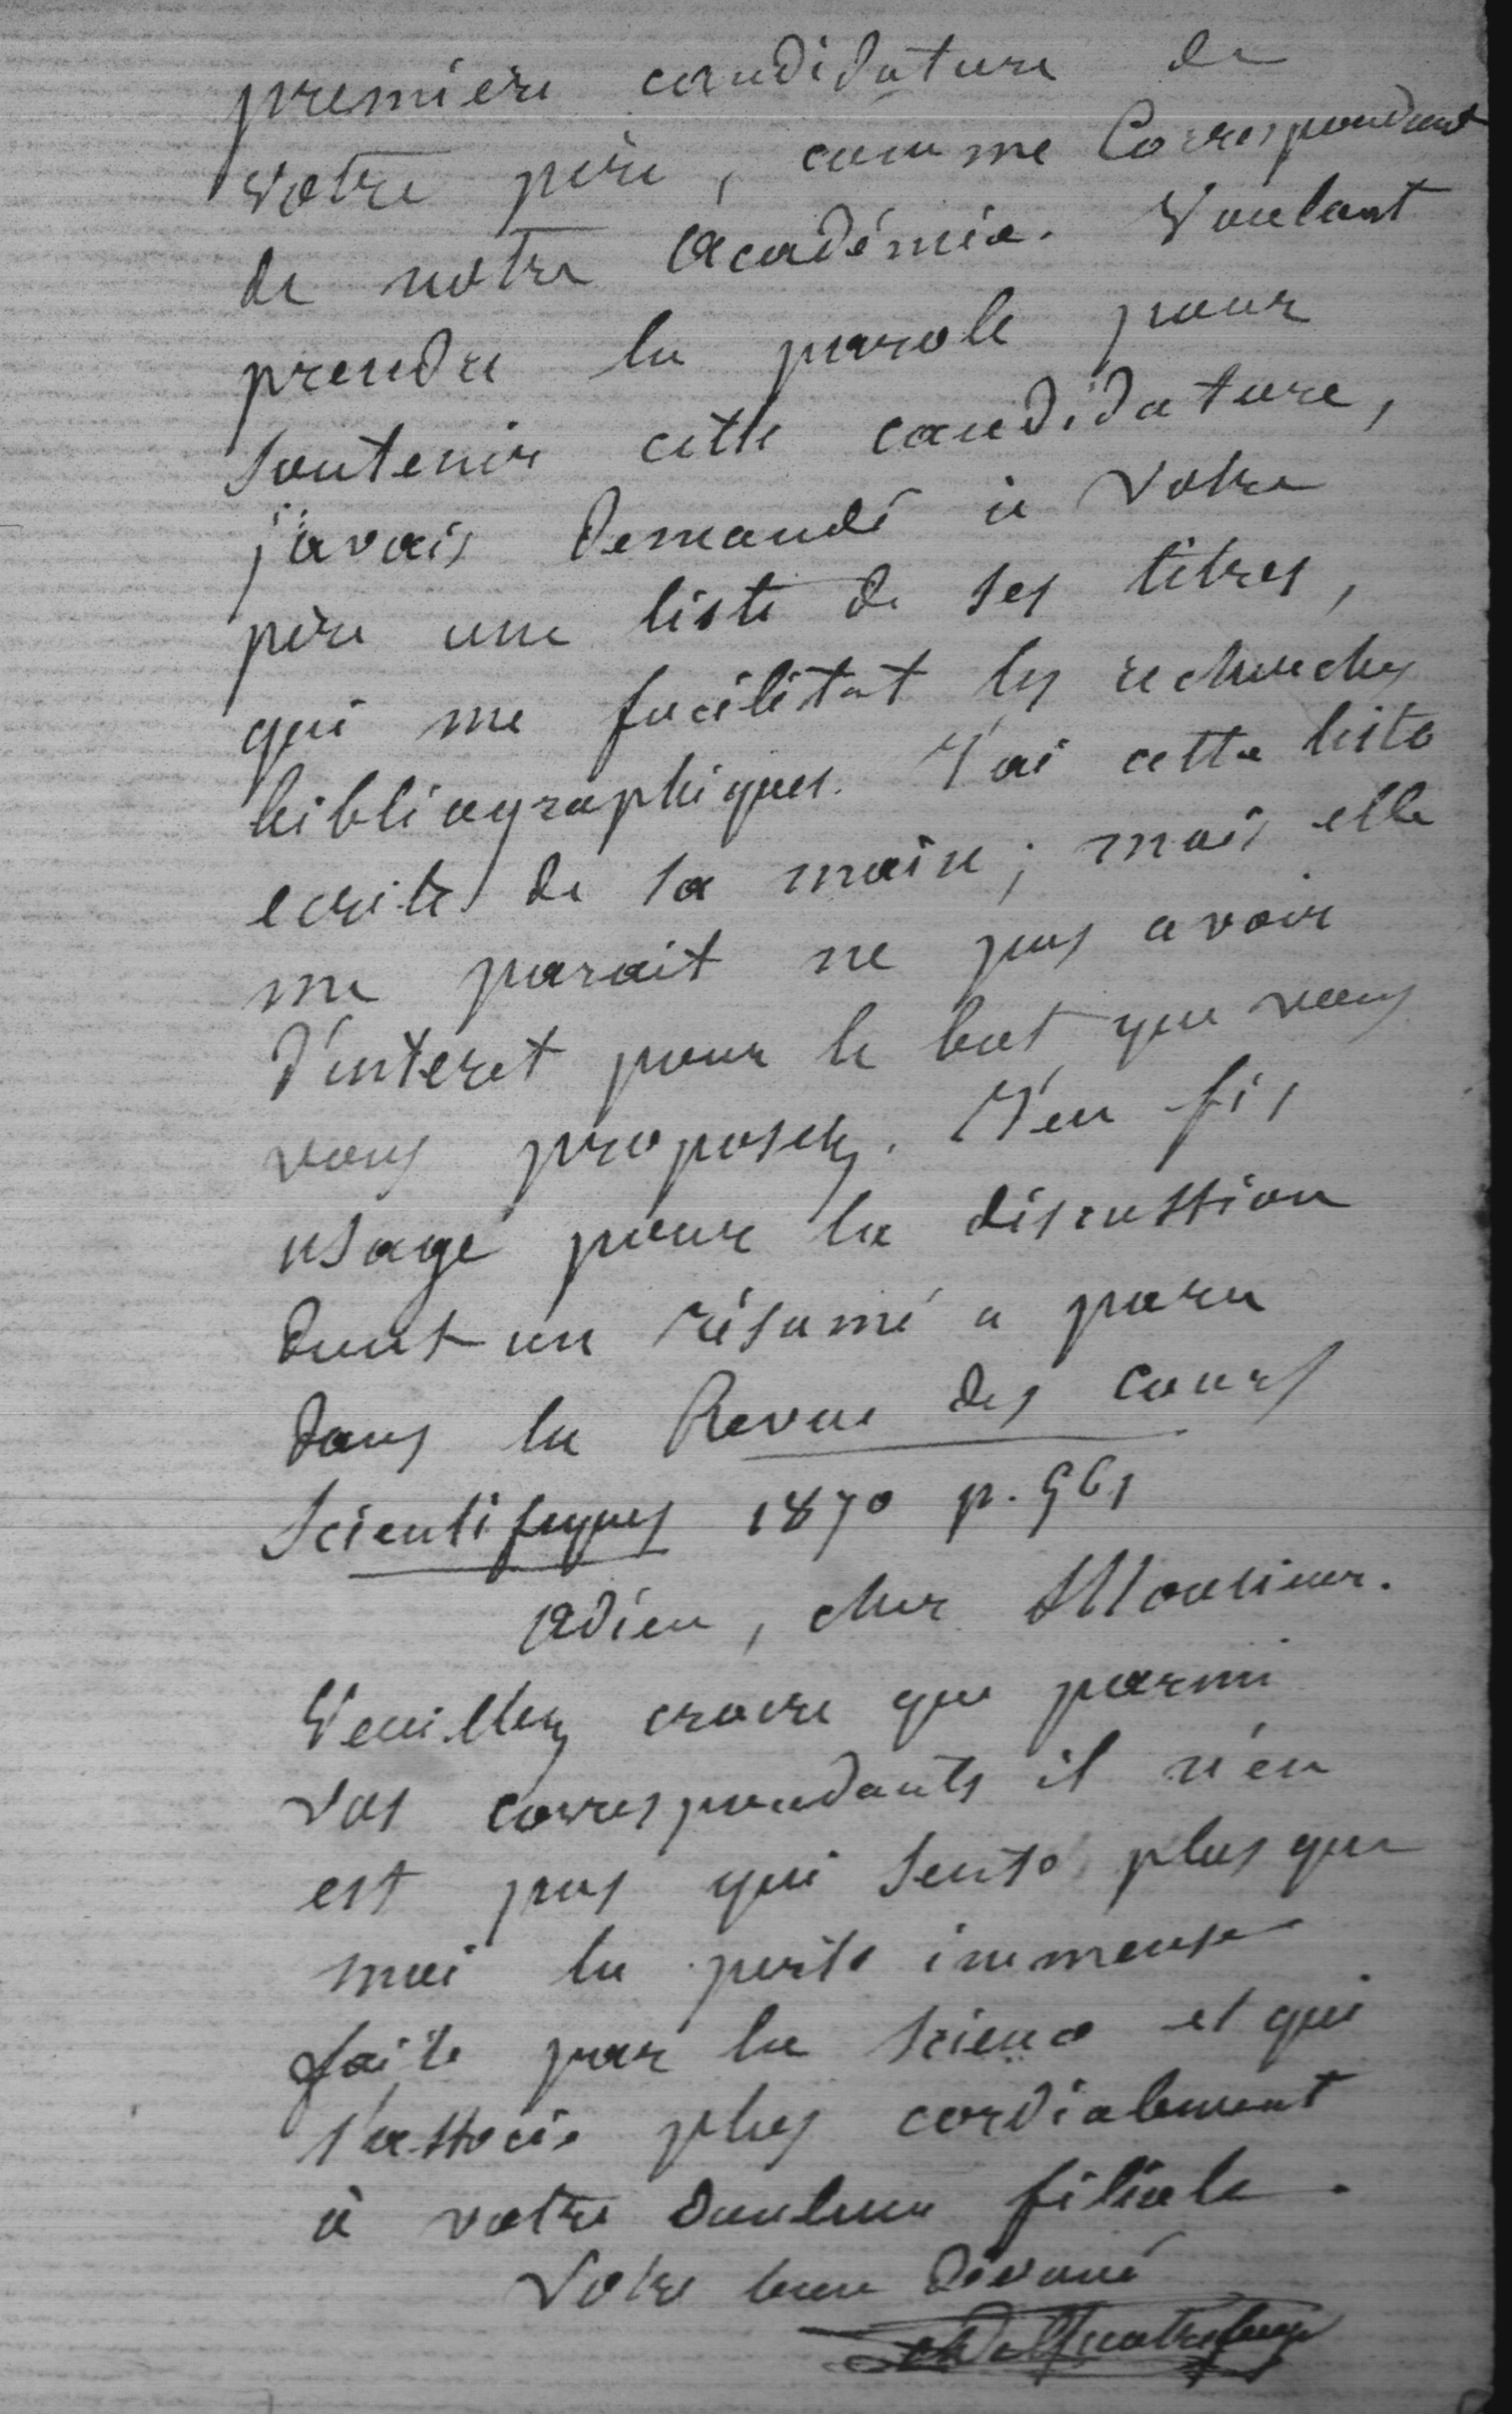 première candidature de
votre père, comme Correspondant
de notre Académie. Voulant
prendre la parole pour
soutenir cette candidature,
j'avais demandé à votre
père une liste de ses titres,
qui me facilitat les recherches
bibliographiques. J'ai cette liste
ecrite de sa main ; mais elle
me parait ne pas avoir
d'interet pour le but que vous
vous proposez. J'en fis
usage pour la discussion
dont un résumé a paru
dans la Revue des cours
Scientifiques 1870 p. 561
Adieu, cher Monsieur.
Veuillez croire que parmi
vos correspondants il n'en
est pas qui sente plus que
moi la perte immense
faite par la science et qui
s'associe plus cordialement
à votre douleur filiale.
Votre bien dévoué
de Quatrefages